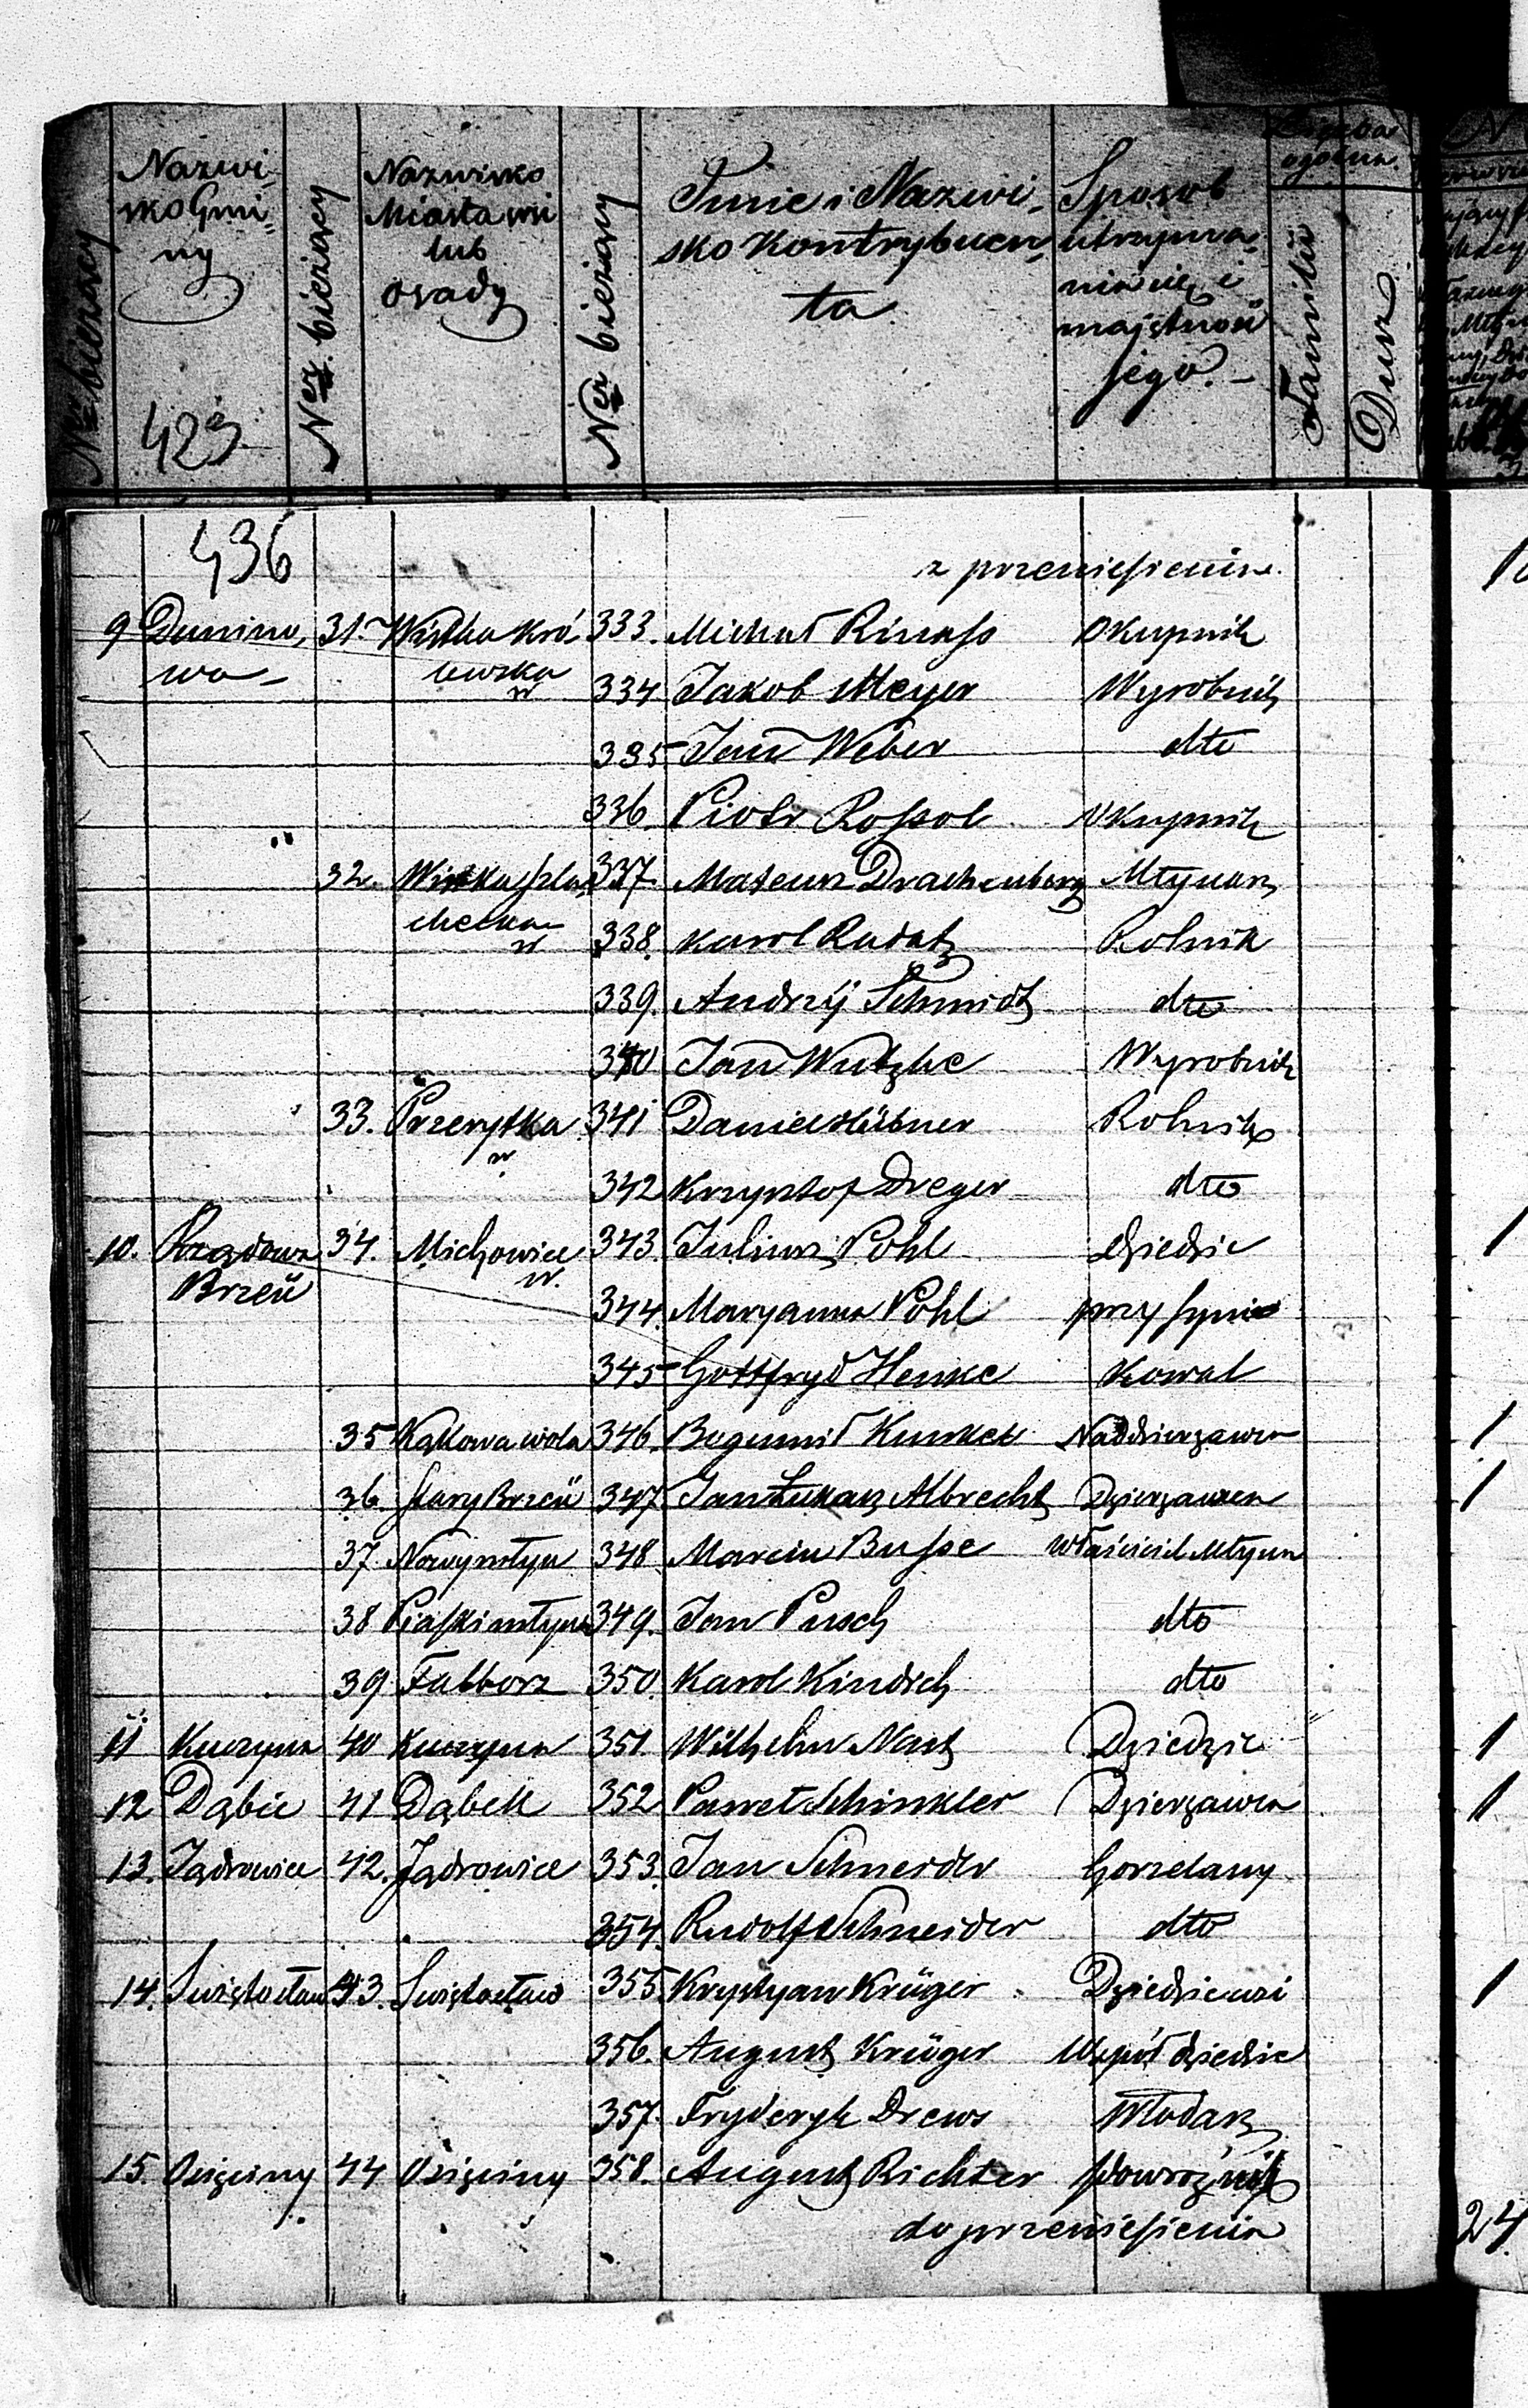 Ner bieżacy
Nazwi-
sko Gmi-
ny
423
Ner bieżący
Nazwisko
Miasta wsi
lub
osady
Ner bieżący
Imie i Nazwi-
sko Kontrybuen-
ta
Sposob
utrzyma-
nia się i
majętność
jego. –
Liczba
ogolna
Familii
Dusz
436
z przeniesienia
9 Dunino- 31. Wistka Kró 333. Michał Rinass Okupnik
wa – lewska w 334 Jakob Meyer Wyrobnik
335 Jan Weber dto
336. Piotr Rossol Okupnik
32. Wistka szla 337. Mateusz Drachenberg Młynarz
checka w 338. Karol Radatz Rolnik
339. Andrzij Schmidt dto
340 Jan Wutzke Wyrobnik
33. Przerytka w 341 Daniel Hübner Rolnik
342 Krzysztof Dreger dto
10. Rządowa 34. Michowice w. 343. Juliusz Pohl dziedzic
Brześć 344. Maryanna Pohl przy synie
345 Gottfryd Henke Kowal
35 Kąkowa wola 346. Bogumił Kunkel Naddzierzawca
36. Stary Brześć 347. Jan Łukasz Albrecht Dzierzawca
37 Nowy młyn 348. Marcin Busse właściciel Młyna
38 Piaski młyn 349. Jan Pusch dto
39 Falborz 350. Karol Kindich dto
11 Kuczyna 40 Kuczyna 351. Wilhelm Nast Dziedzic
12 Dąbie 41 Dąbek 352. Paweł Schinkler Dzierzawca
13. Jądrowice 42. Jądrowice 353. Jan Schneider Gorzelany
354. Rudolf Schneider dto
14. Swiętosław 43. Swiętosław 355. Krystyan Krüger Dziedzic wsi
356. August Krüger Współ dziedzic
357. Fryderyk Drews Włodarz
15. Osięciny 44 Osięciny 358. August Richter powroźnik
do przeniesienia
24